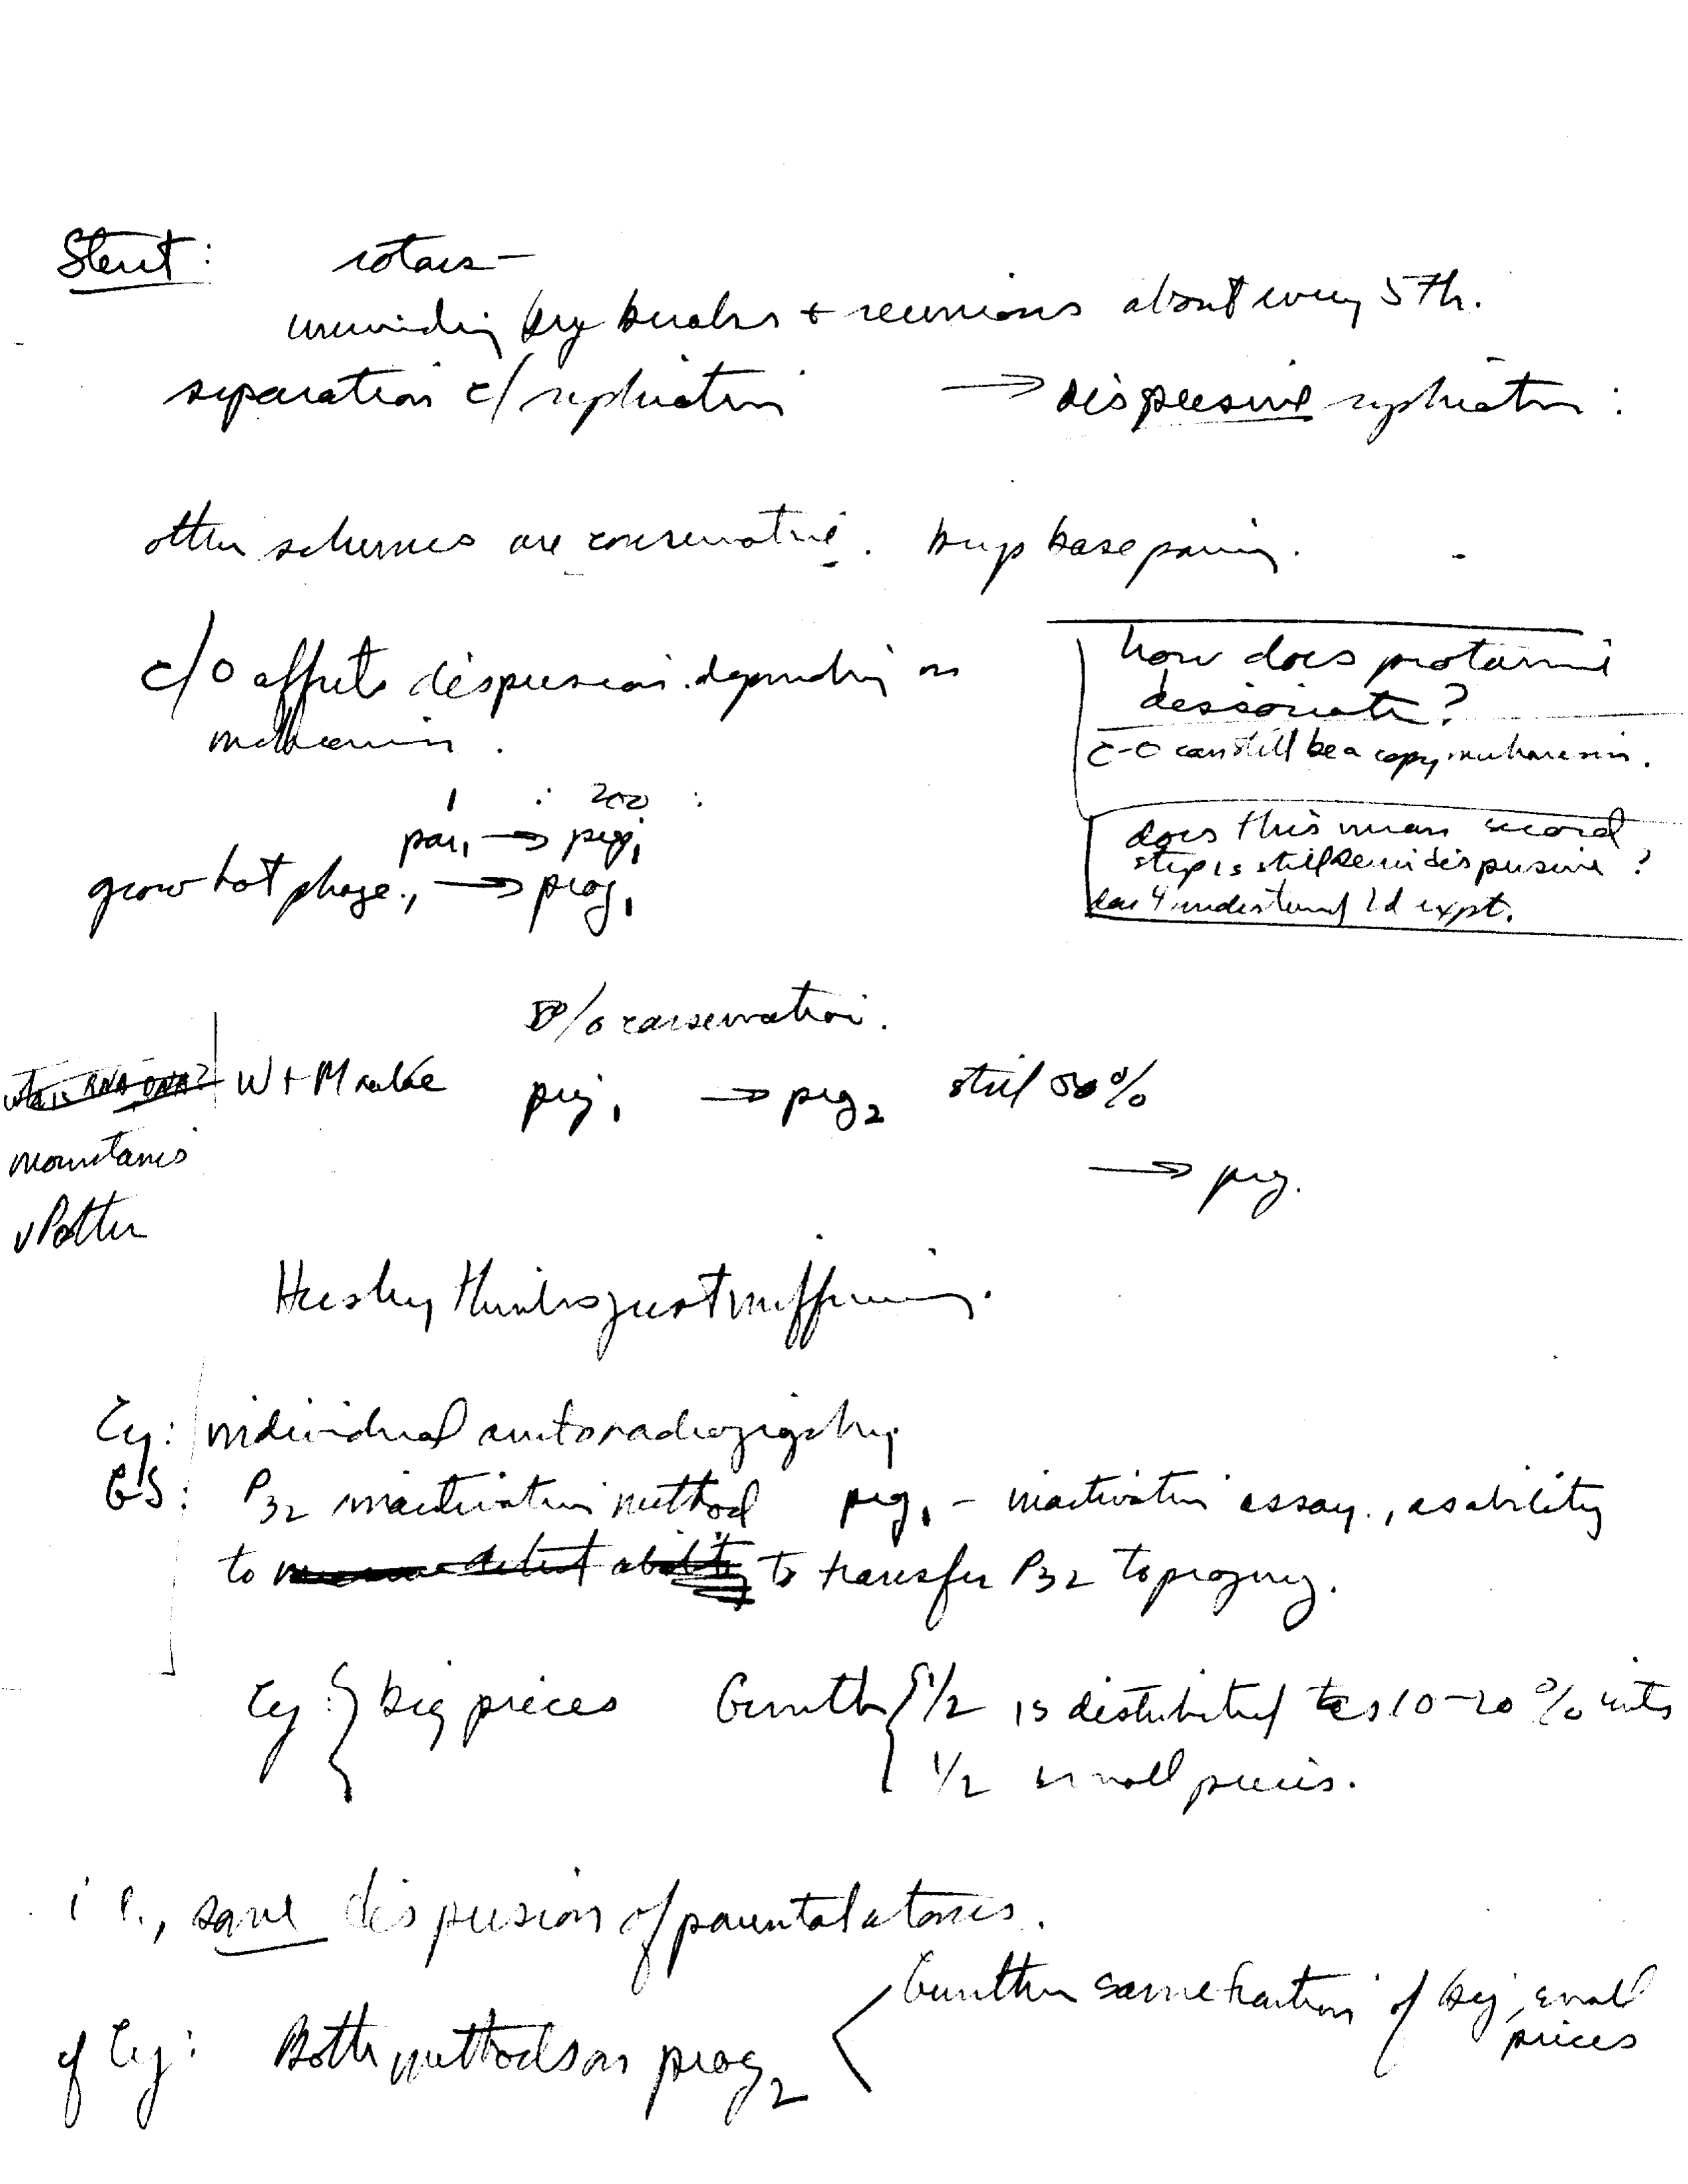 Stent: rotais—
unwinding by breaks + reunions about every 5th.
separation c/ replication → dispersive replication:
other schemes are conservative. keep base pairing.
c/o affects dispersion depending on
mechanism.
how does protamine
dissociate?
c-o can still be a copy mechanism.
does this mean second
step is still semidispersive?
understand 2d expt.
1 : 200 :
par1 → prog1
grow hot phage, → prog1
50% conservation.
W + M make prog1 → prog2 still 50%
→ prog.
mountains
v Potter
Hershey thinks just
Cy: individual autoradiography
GS: P32 inactivation method prog1 – inactivation assay, as ability
to to transfer P32 to progeny.
Cy: } big pieces Gunther { 1/2 is distributed 10–20% units
1/2 small pieces.
i.e., same dispersion of parental atoms.
if Cy: Both methods on prog2 < Gunther same fraction of big, small
pieces